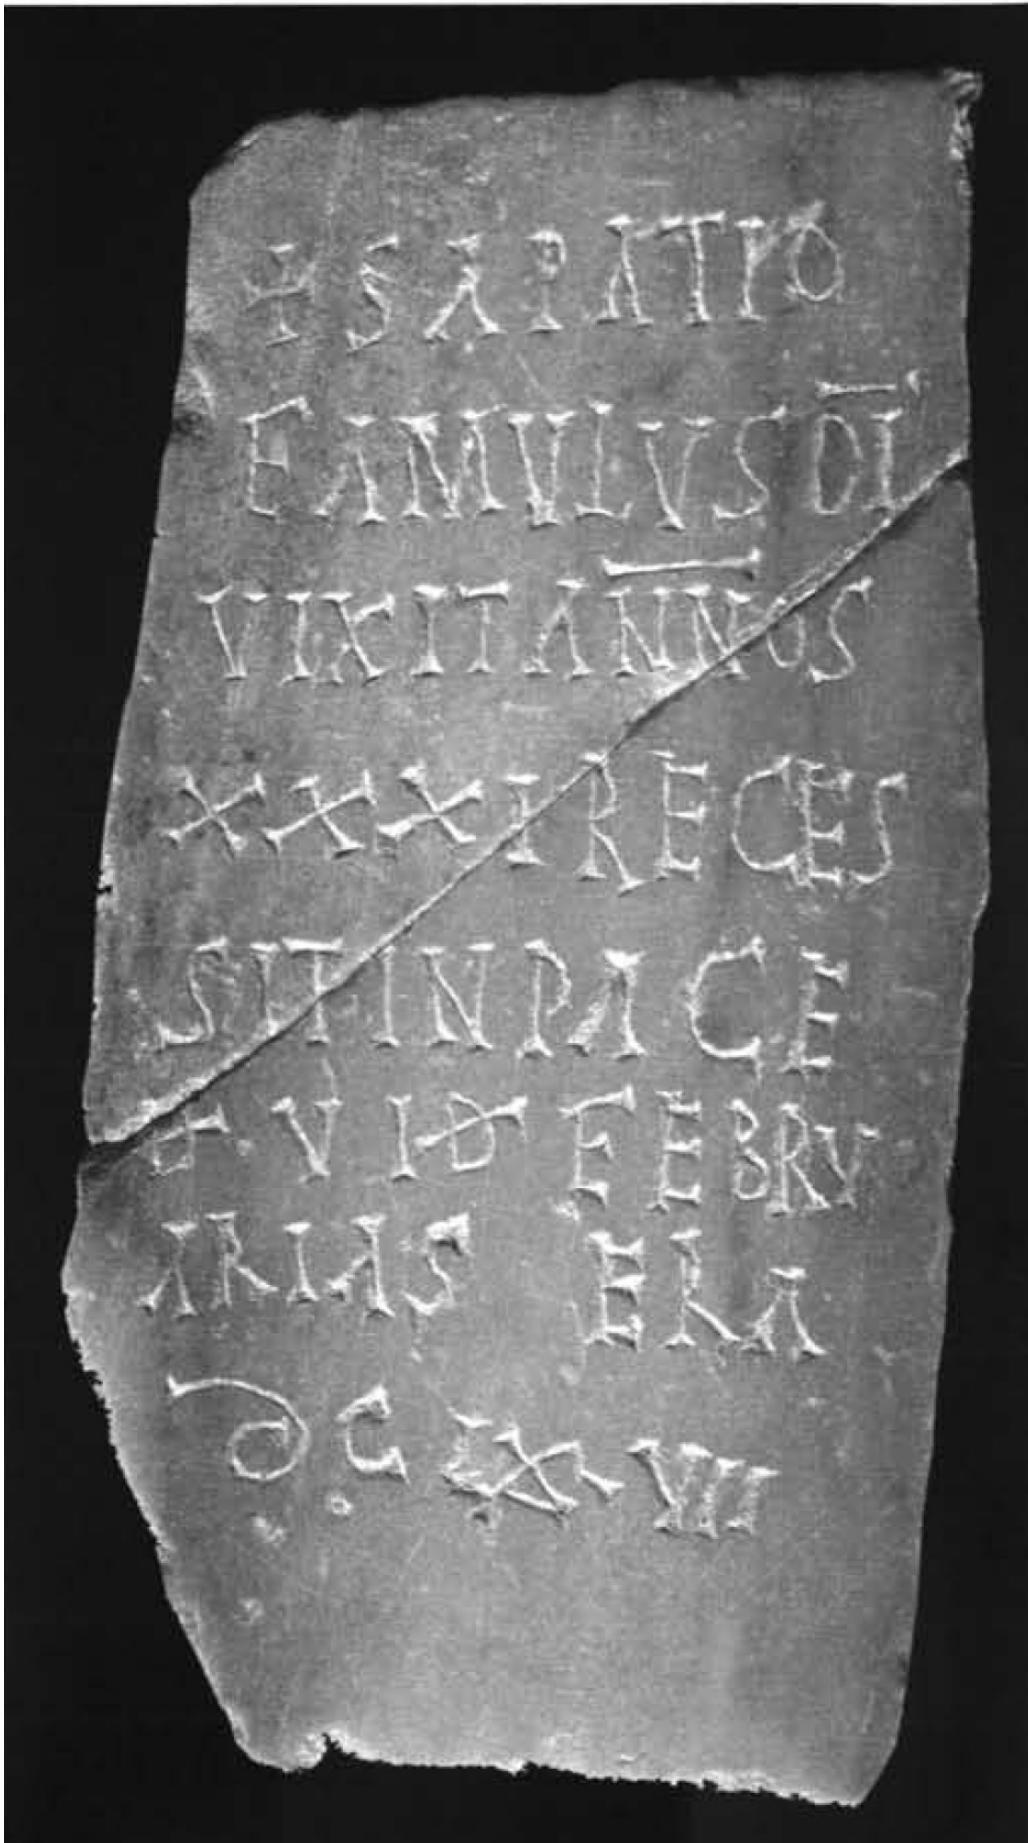 + SAPATRO
FAMULUS DI
VIXIT ANNOS
XXXI RECES
SIT IN PACE
D V ID FEBRV
ARIAS ERA
DC LX VII